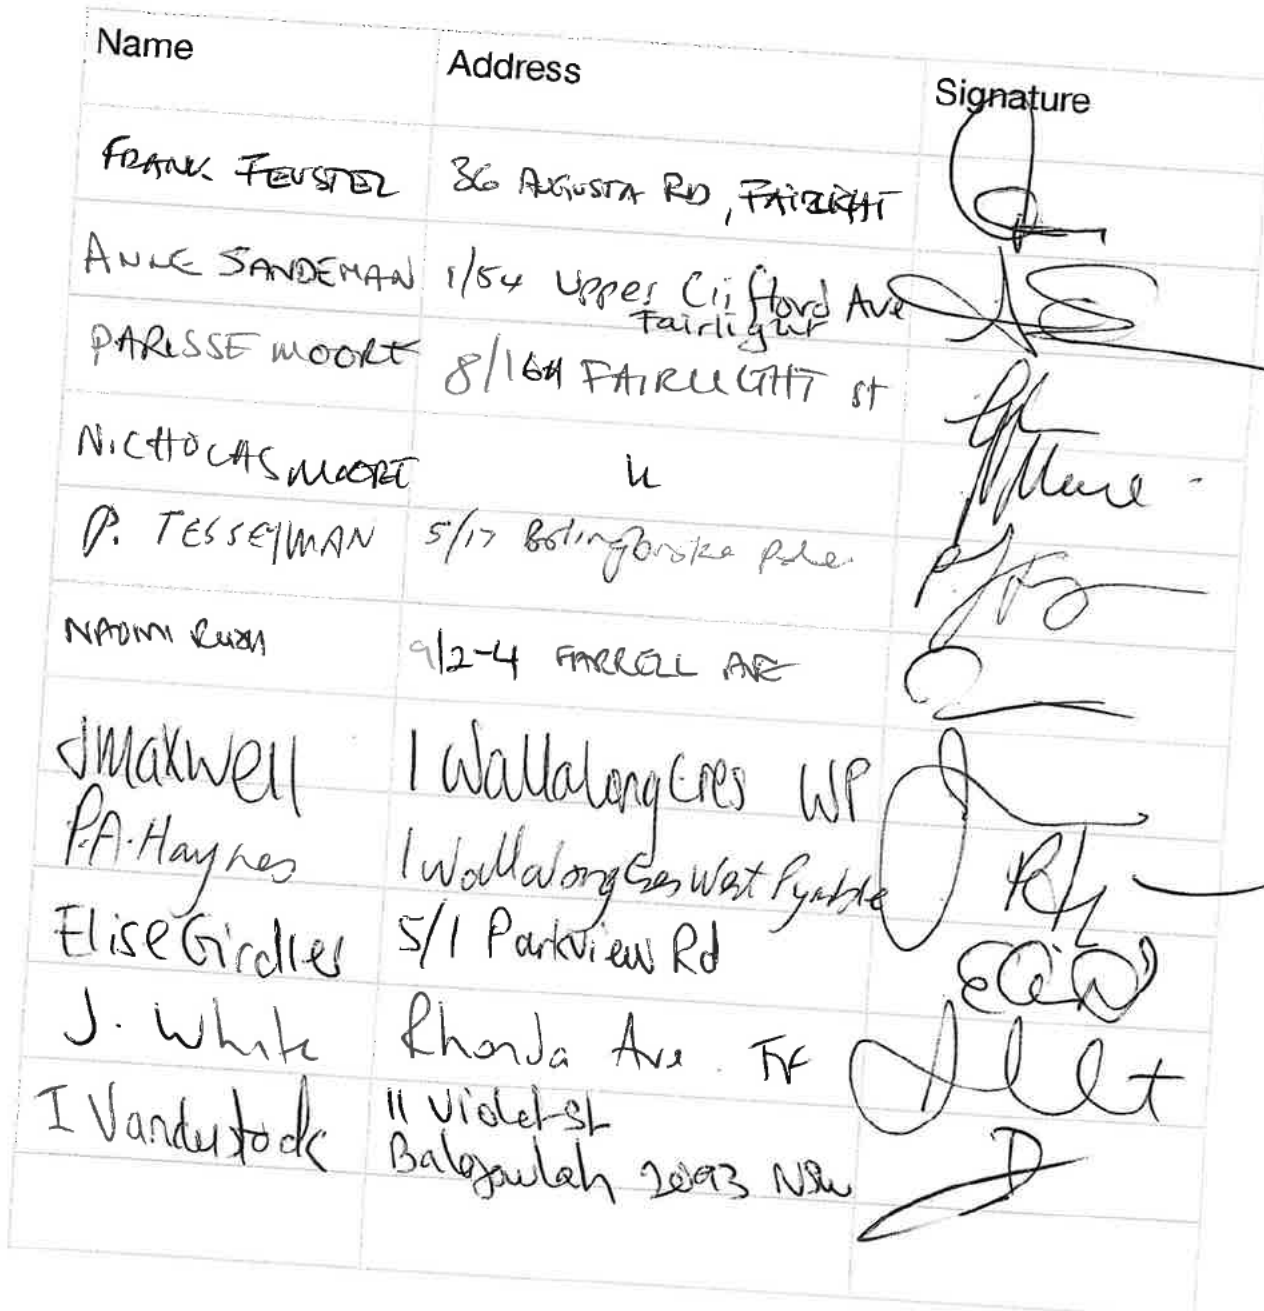 Name Address Signature
FRANK FEUSTEL 36 AUGUSTA RD, FAIRLIGHT
ANNE SANDEMAN 1/54 Upper Clifford Ave
Fairlight
PARISSE MOORE 8/16A FAIRLIGHT St
NICHOLAS MOORE "
P. TESSEYMAN 5/17 Bolingbroke Pde
NAOMI RUSH 9/2-4 FARRELL AVE
J Maxwell 1 Wallalong Cres WP
P.A. Haynes 1 Wallalong Cres West Pymble
Elise Girdler 5/1 Parkview Rd
J. White Rhonda Ave
I Vanderstock 11 Violet St
Balgowlah 2093 NSW